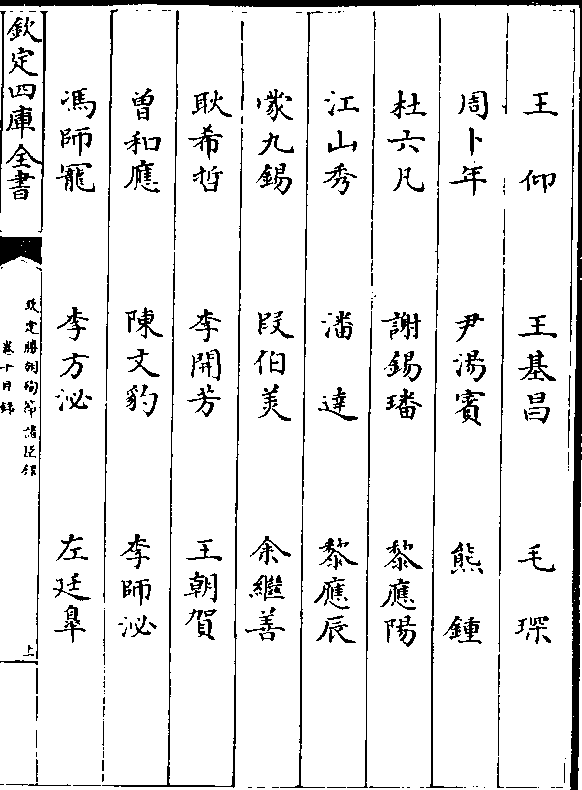 王仰　王基昌　毛琛
周卜年　尹湯賓　熊鍾
杜六凡　謝錫璠　黎應陽
江山秀　潘達　黎應辰
蒙九錫　段伯美　余繼善
耿希哲　李開芳　王朝賀
曾和應　陳文豹　李師泌
馮師寵　李方泌　左廷臯
欽定四庫全書
欽定勝朝殉節諸臣錄
卷十目錄
上